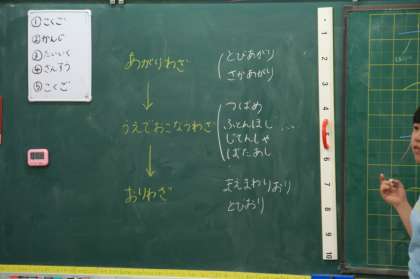 ①こくご
②かんじ
③たいいく
④さんすう
⑤こくご
あがりわざ
とびあがり
さかあがり
↓
うえでおこなうわざ
つばめ
ふとんほし …
じてんしゃ
ばたあし
↓
おりわざ
まえまわりおり
とびおり
1
2
3
4
5
6
7
8
9
10